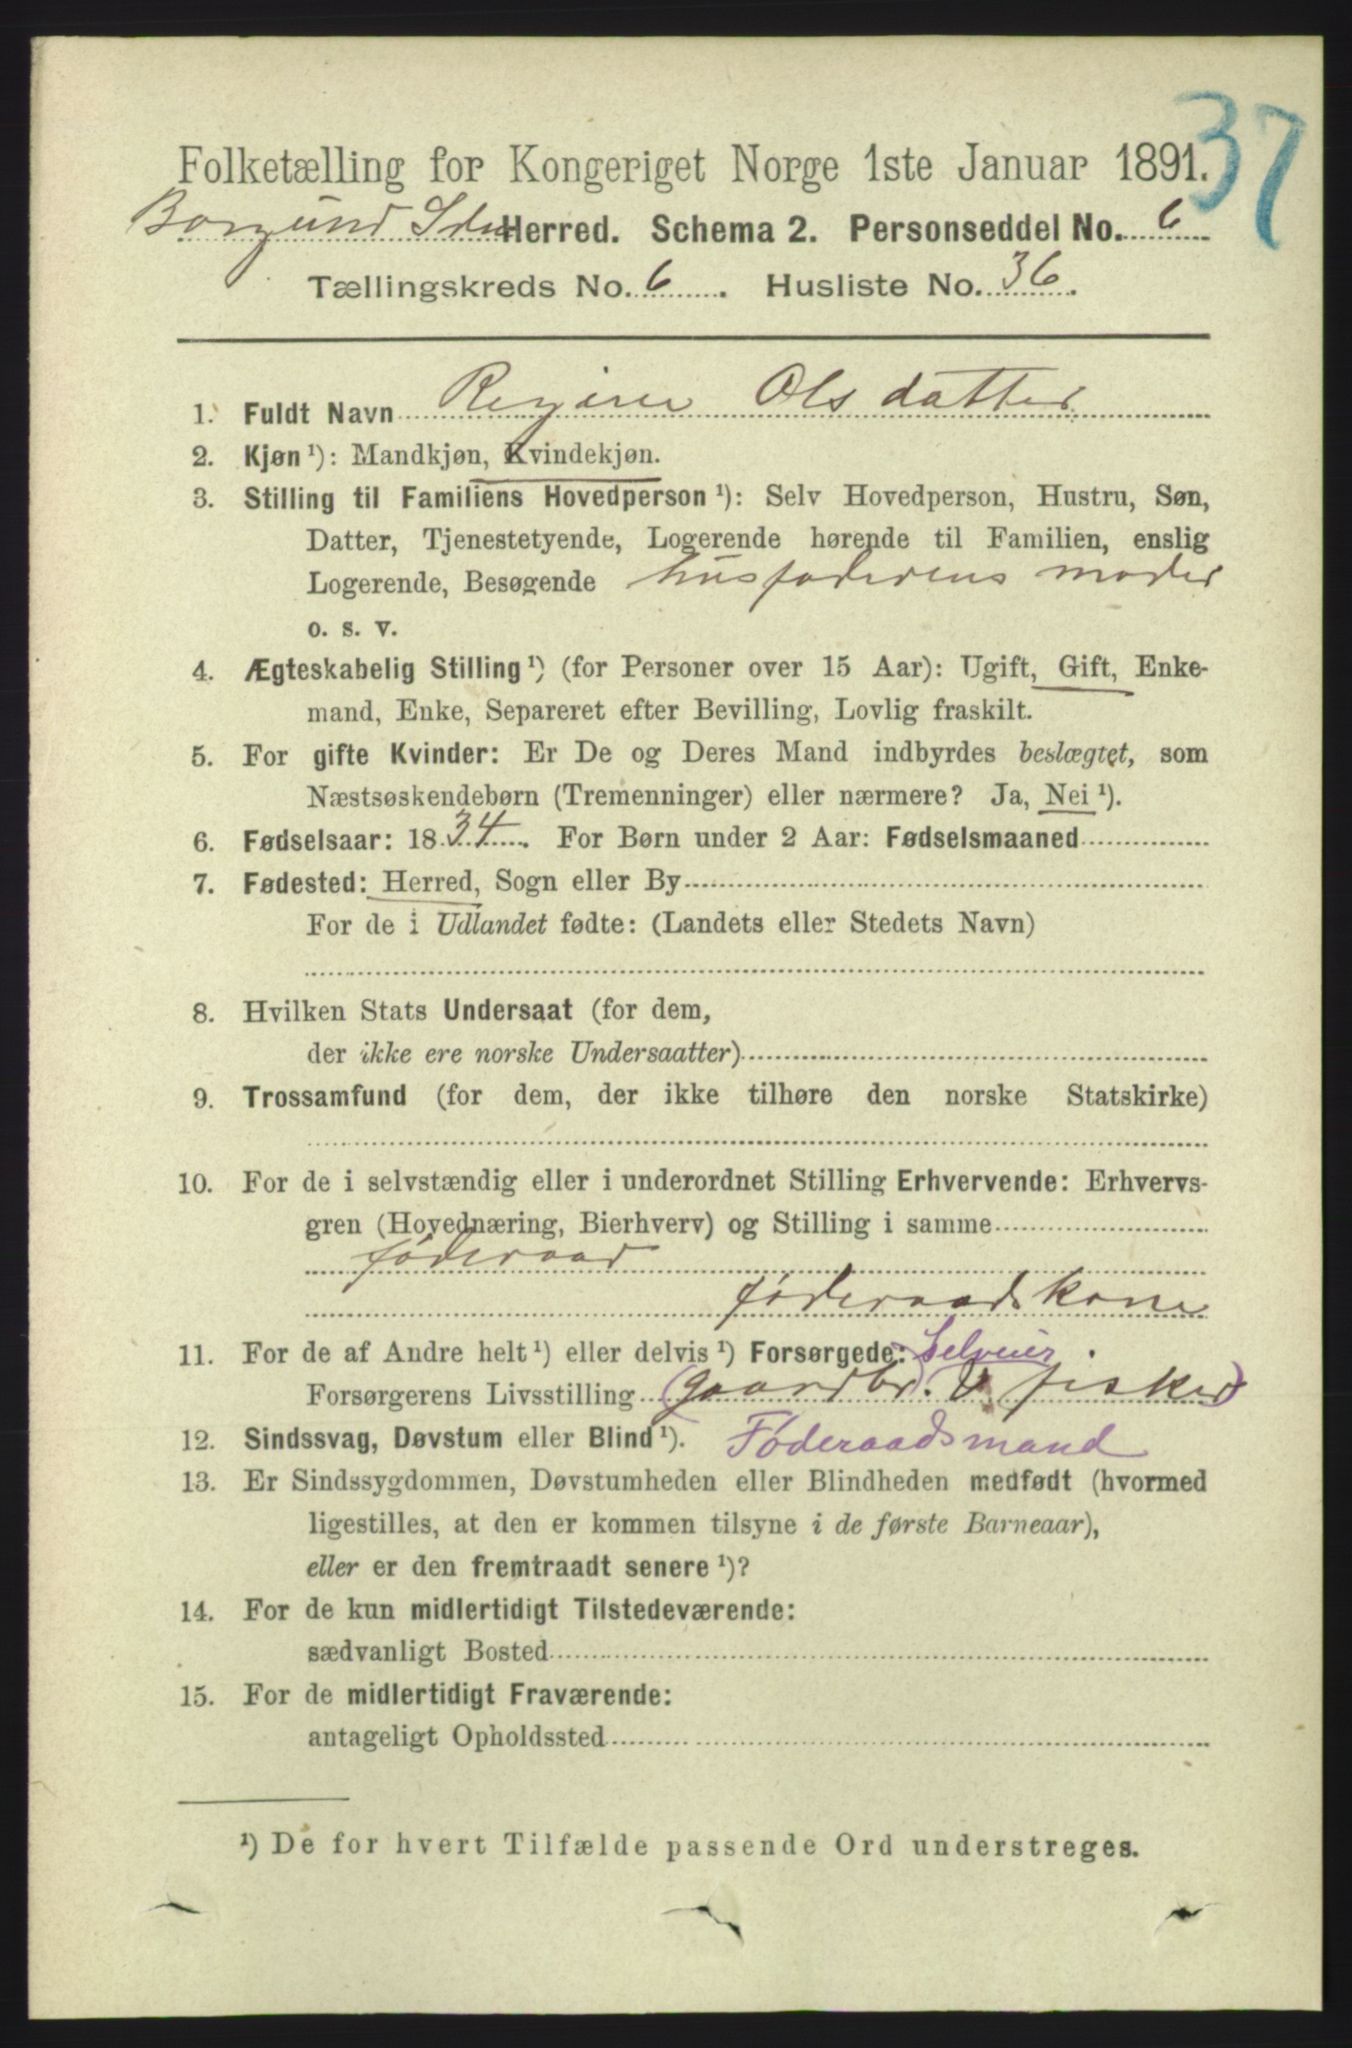 37
Folketælling for Kongeriget Norge 1ste Januar 1891.
Borgund Herred. Schema 2. Personseddel No. 6
Tællingskreds No. 6. Husliste No. 36.
1. Fuldt Navn Regine Olsdatter
2. Kjøn ¹): Mandkjøn, Kvindekjøn.
3. Stilling til Familiens Hovedperson ¹): Selv Hovedperson, Hustru, Søn,
Datter, Tjenestetyende, Logerende hørende til Familien, enslig
Logerende, Besøgende husfaderens moder
o. s. v.
4. Ægteskabelig Stilling ¹) (for Personer over 15 Aar): Ugift, Gift, Enke-
mand, Enke, Separeret efter Bevilling, Lovlig fraskilt.
5. For gifte Kvinder: Er De og Deres Mand indbyrdes beslægtet, som
Næstsøskendebørn (Tremenninger) eller nærmere? Ja, Nei ¹).
6. Fødselsaar: 1834. For Børn under 2 Aar: Fødselsmaaned
7. Fødested: Herred, Sogn eller By
For de i Udlandet fødte: (Landets eller Stedets Navn)
8. Hvilken Stats Undersaat (for dem,
der ikke ere norske Undersaatter)
9. Trossamfund (for dem, der ikke tilhøre den norske Statskirke)
10. For de i selvstændig eller i underordnet Stilling Erhvervende: Erhvervs-
gren (Hovednæring, Bierhverv) og Stilling i samme
føderaad
føderaadskone
11. For de af Andre helt ¹) eller delvis ¹) Forsørgede: Selveier
Forsørgerens Livsstilling (gaardbr. & fisker)
12. Sindssvag, Døvstum eller Blind ¹). Føderaadsmand
13. Er Sindssygdommen, Døvstumheden eller Blindheden medfødt (hvormed
ligestilles, at den er kommen tilsyne i de første Barneaar),
eller er den fremtraadt senere ¹)?
14. For de kun midlertidigt Tilstedeværende:
sædvanligt Bosted
15. For de midlertidigt Fraværende:
antageligt Opholdssted
¹) De for hvert Tilfælde passende Ord understreges.